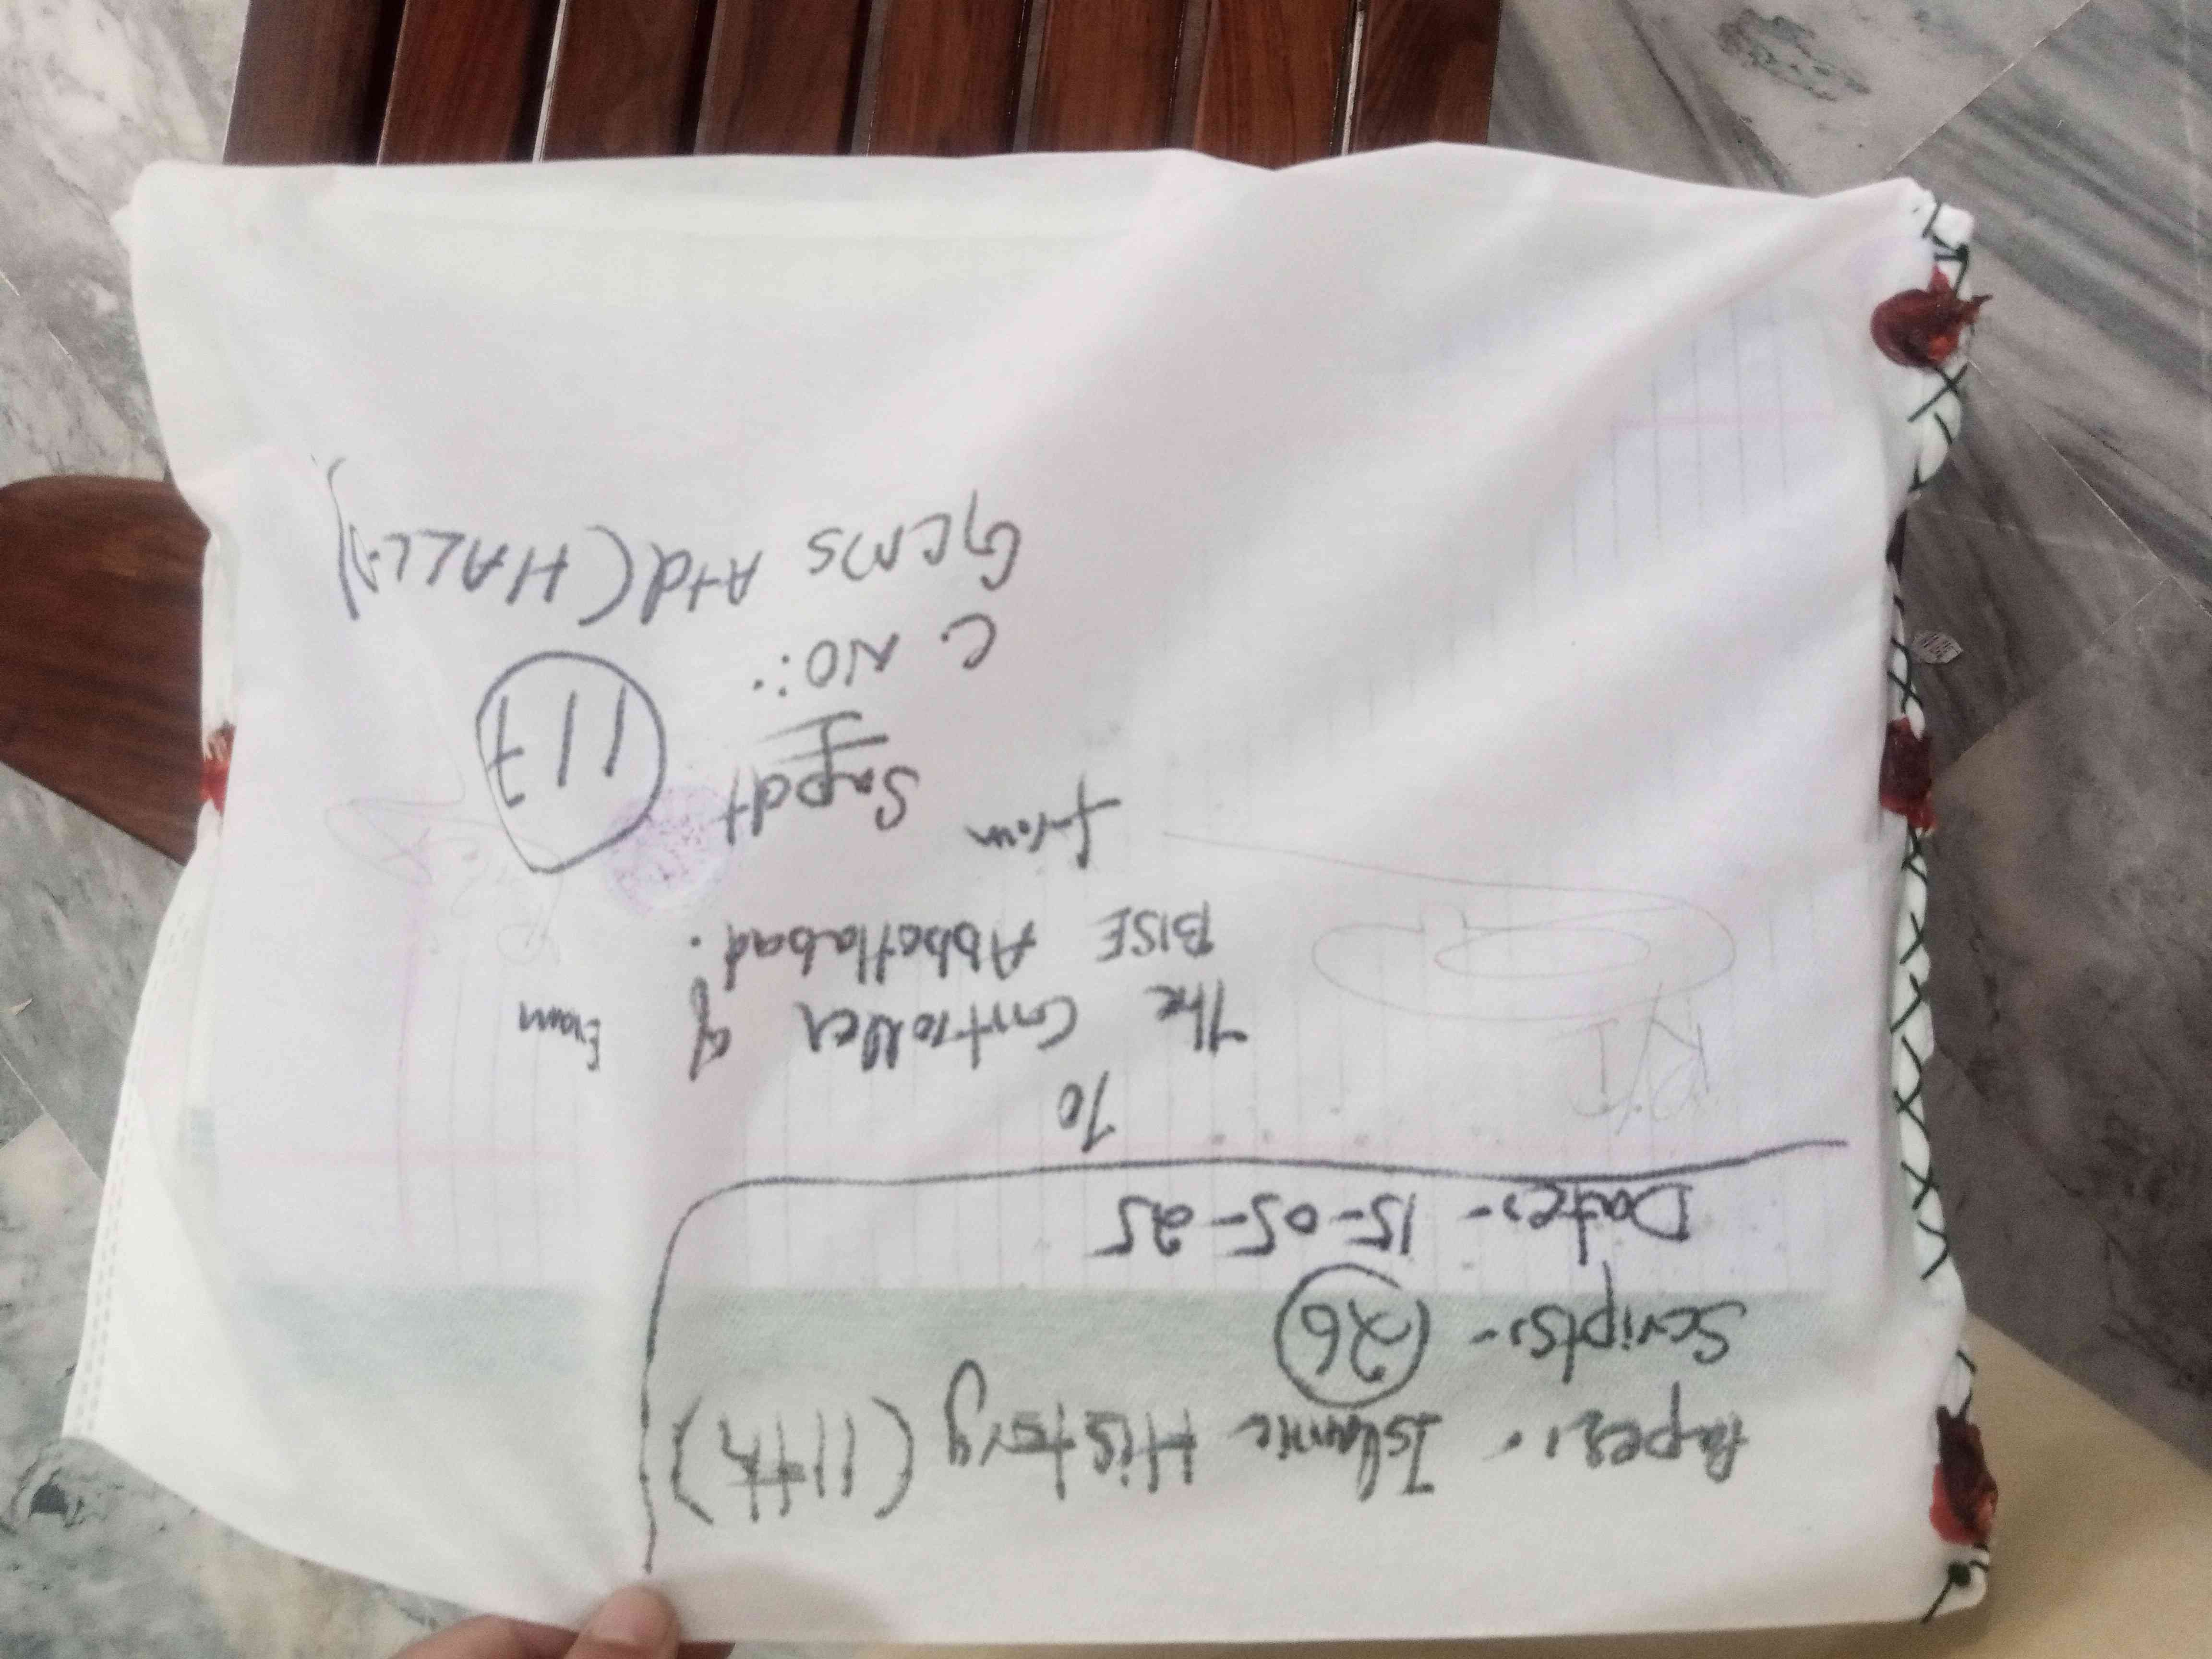 Paper:- Islamic History (11th)
Scripts:- 26
Date:- 15-05-25
To
The Controller of Exam
BISE Abbottabad.
from
Supdt
C. NO:. 117
GCMS Atd (HALL-A)